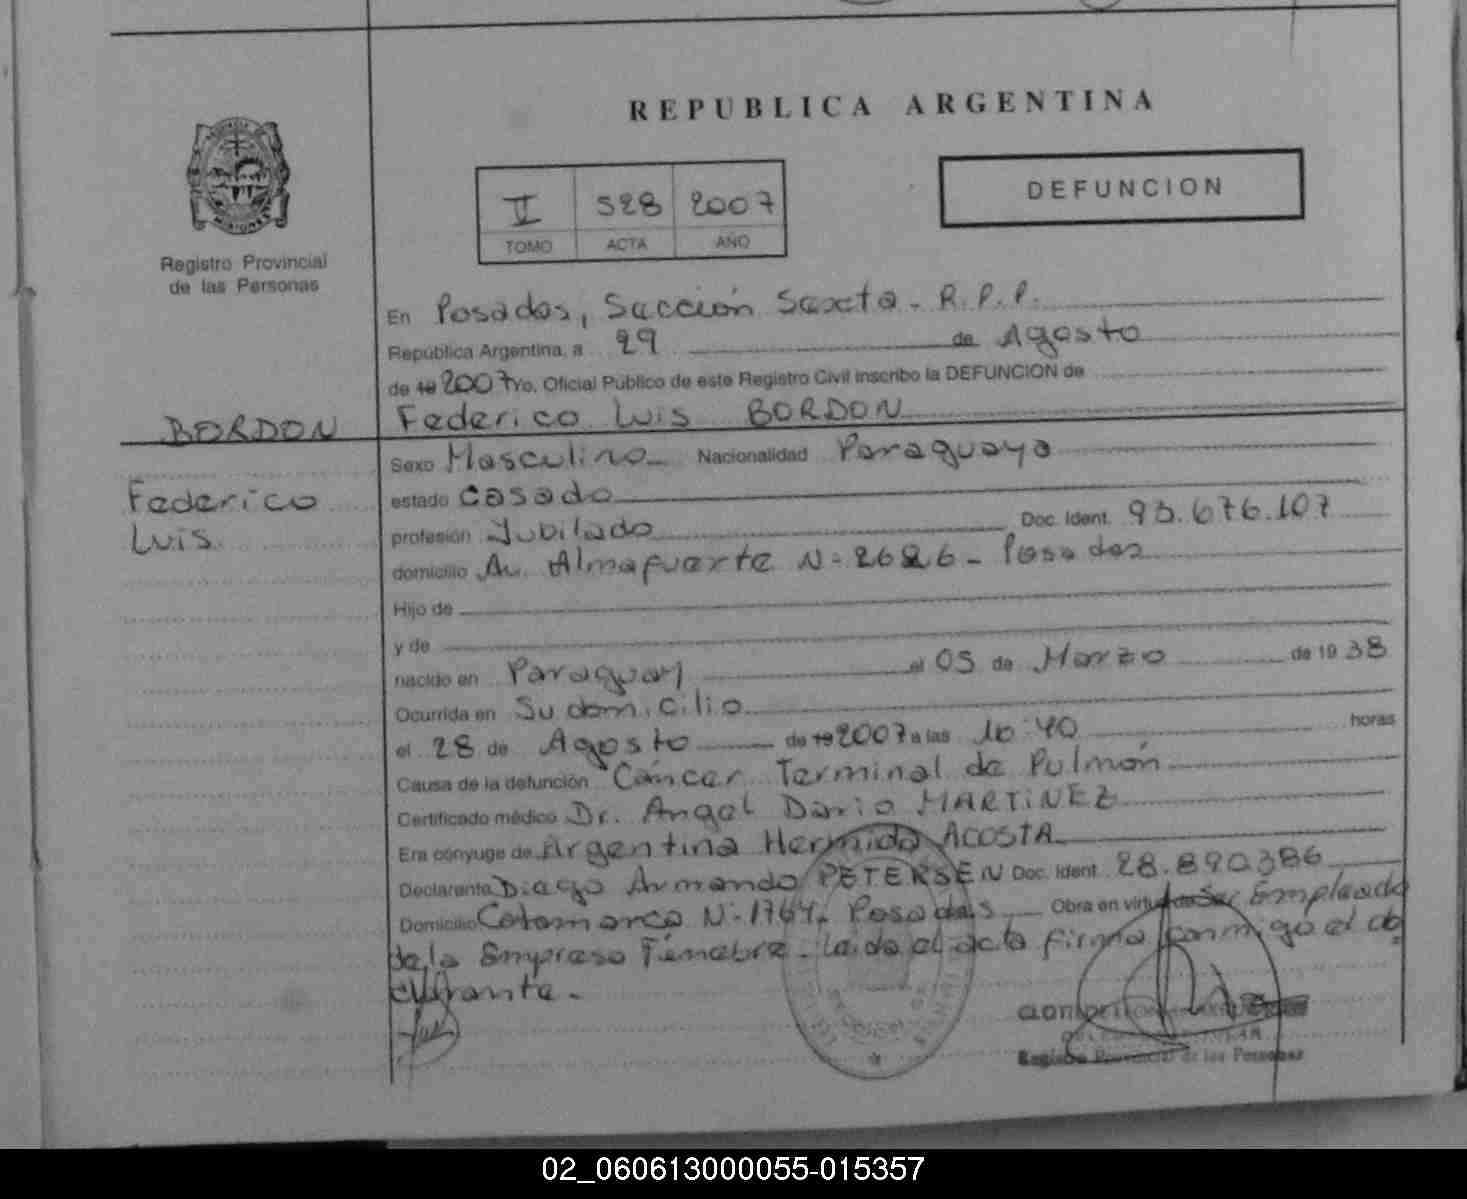 REPUBLICA ARGENTINA
DEFUNCION
II 528 2007
TOMO ACTA AÑO
Registro Provincial
de las Personas
En Posadas, Sección Sexta - R.P.P.
República Argentina, a 29 de Agosto
de 19 2007 Yo, Oficial Público de este Registro Civil inscribo la DEFUNCION de
BORDON
Federico Luis BORDON
Federico
Luis
Sexo Masculino Nacionalidad Paraguaya
estado Casado
profesión Jubilado Doc. Ident. 93.676.107
domicilio Av. Almafuerte N- 2626 - Posadas
Hijo de
y de
nacido en Paraguay el 05 de Marzo de 19 38
Ocurrida en Su domicilio
el 28 de Agosto de 19 2007 a las 10:40 horas
Causa de la defunción Cáncer Terminal de Pulmón
Certificado médico Dr. Angel Dario MARTINEZ
Era cónyuge de Argentina Hermida ACOSTA
Declarante Diego Armando PETERSEN Doc. Ident. 28.890.386
Domicilio Catamarca N- 1764- Posadas Obra en virtud de Ser Empleado
de la Empresa Fúnebre - Leida el acta firma conmigo el de
clarante -
Registro Provincial de las Personas
02_060613000055-015357